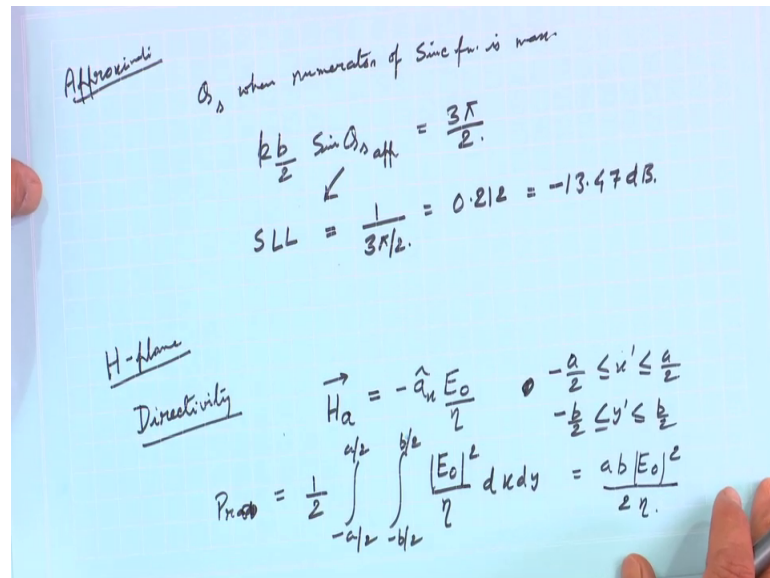 Approximati
θs when numerator of Sinc fn. is max
k b/2 Sin θs app = 3π/2.
SLL = 1/(3π/2.) = 0.212 = -13.47 dB.
H-plane
Directivity
H⃗a = -âx E0/η -a/2 ≤ x' ≤ a/2
-b/2 ≤ y' ≤ b/2
Prad = 1/2 ∫_{-a/2}^{a/2} ∫_{-b/2}^{b/2} |E0|²/η dx dy = ab|E0|²/2η.